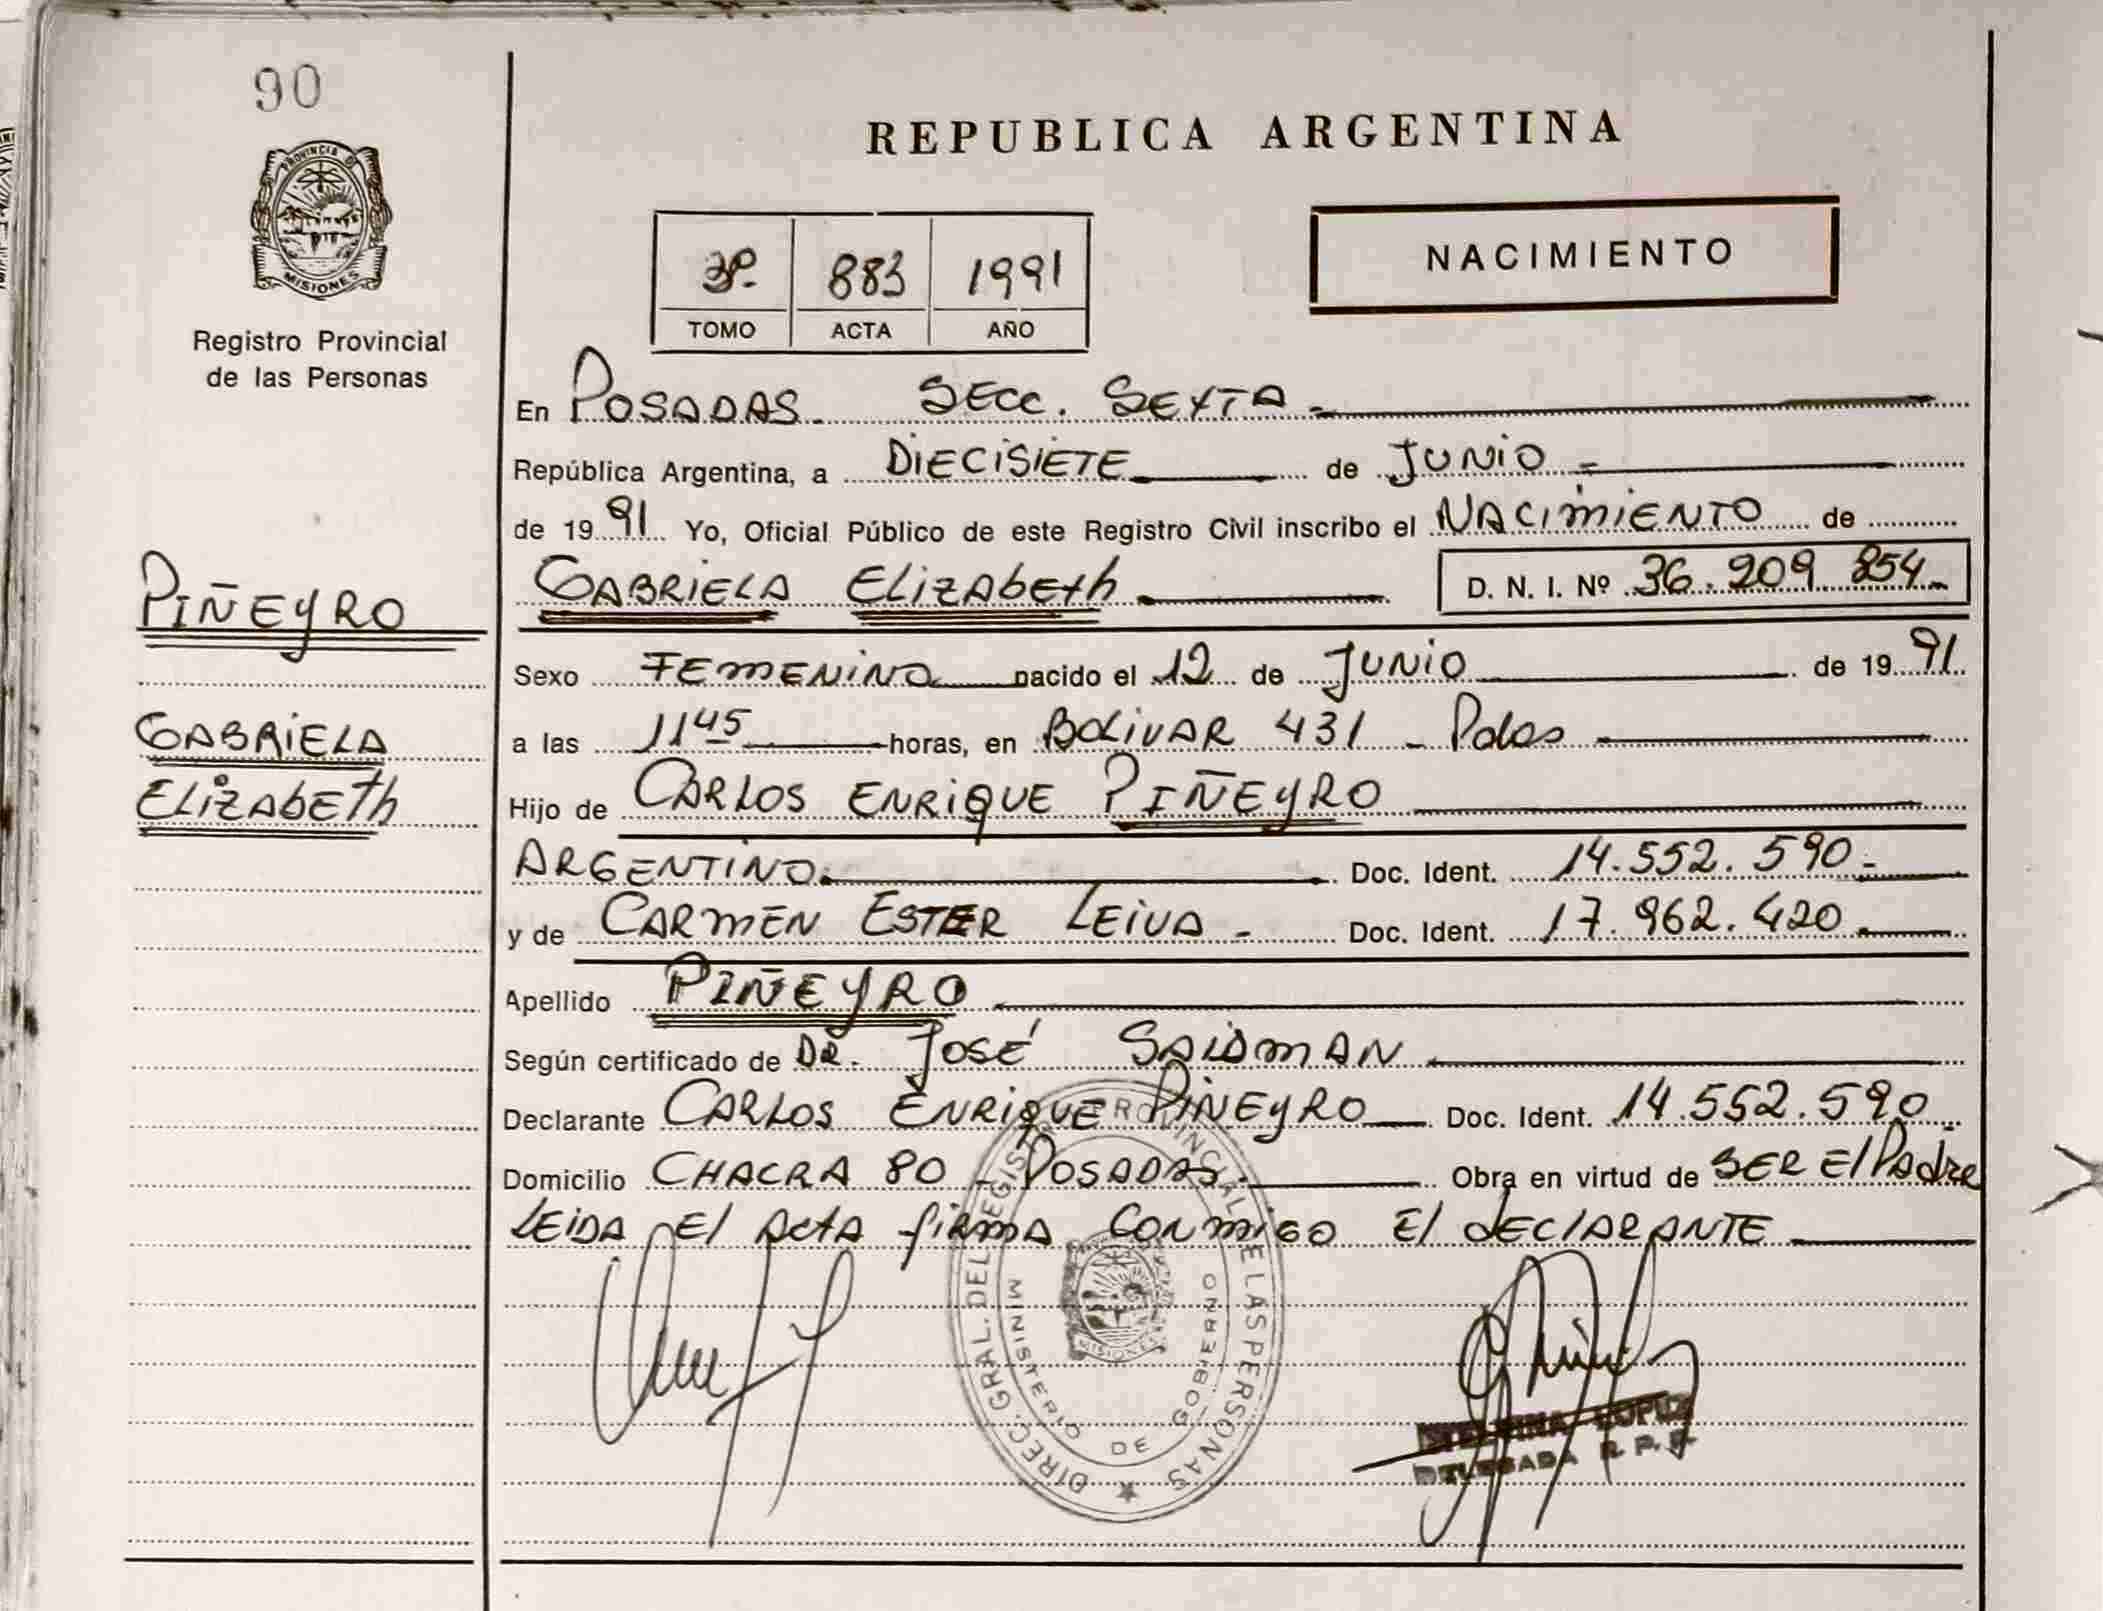 90
PROVINCIA DE
MISIONES
Registro Provincial
de las Personas
PIÑEYRO
GABRIELA
ELIZABETH
REPUBLICA ARGENTINA
3º. 883 1991
TOMO ACTA AÑO
NACIMIENTO
En POSADAS. SECC. SEXTA
República Argentina, a DIECISIETE de JUNIO
de 1991 Yo, Oficial Público de este Registro Civil inscribo el NACIMIENTO de
GABRIELA ELIZABETH D. N. I. Nº 36.209.254
Sexo FEMENINO nacido el 12 de JUNIO de 1991
a las 11 45 horas, en BOLIVAR 431 - Pdas
Hijo de CARLOS ENRIQUE PIÑEYRO
ARGENTINO. Doc. Ident. 14.552.590
y de CARMEN ESTER LEIVA - Doc. Ident. 17.962.420
Apellido PIÑEYRO
Según certificado de DR. JOSÉ SAIDMAN
Declarante CARLOS ENRIQUE PIÑEYRO Doc. Ident. 14.552.590
Domicilio CHACRA 80 - POSADAS. Obra en virtud de SER El Padre
LEIDA El ACTA firma CONMIGO El dECLARANTE
DIREC. GRAL. DEL REGISTRO PROVINCIAL DE LAS PERSONAS
MINISTERIO DE GOBIERNO
MISIONES
LOPEZ
DELEGADA R. P. P.